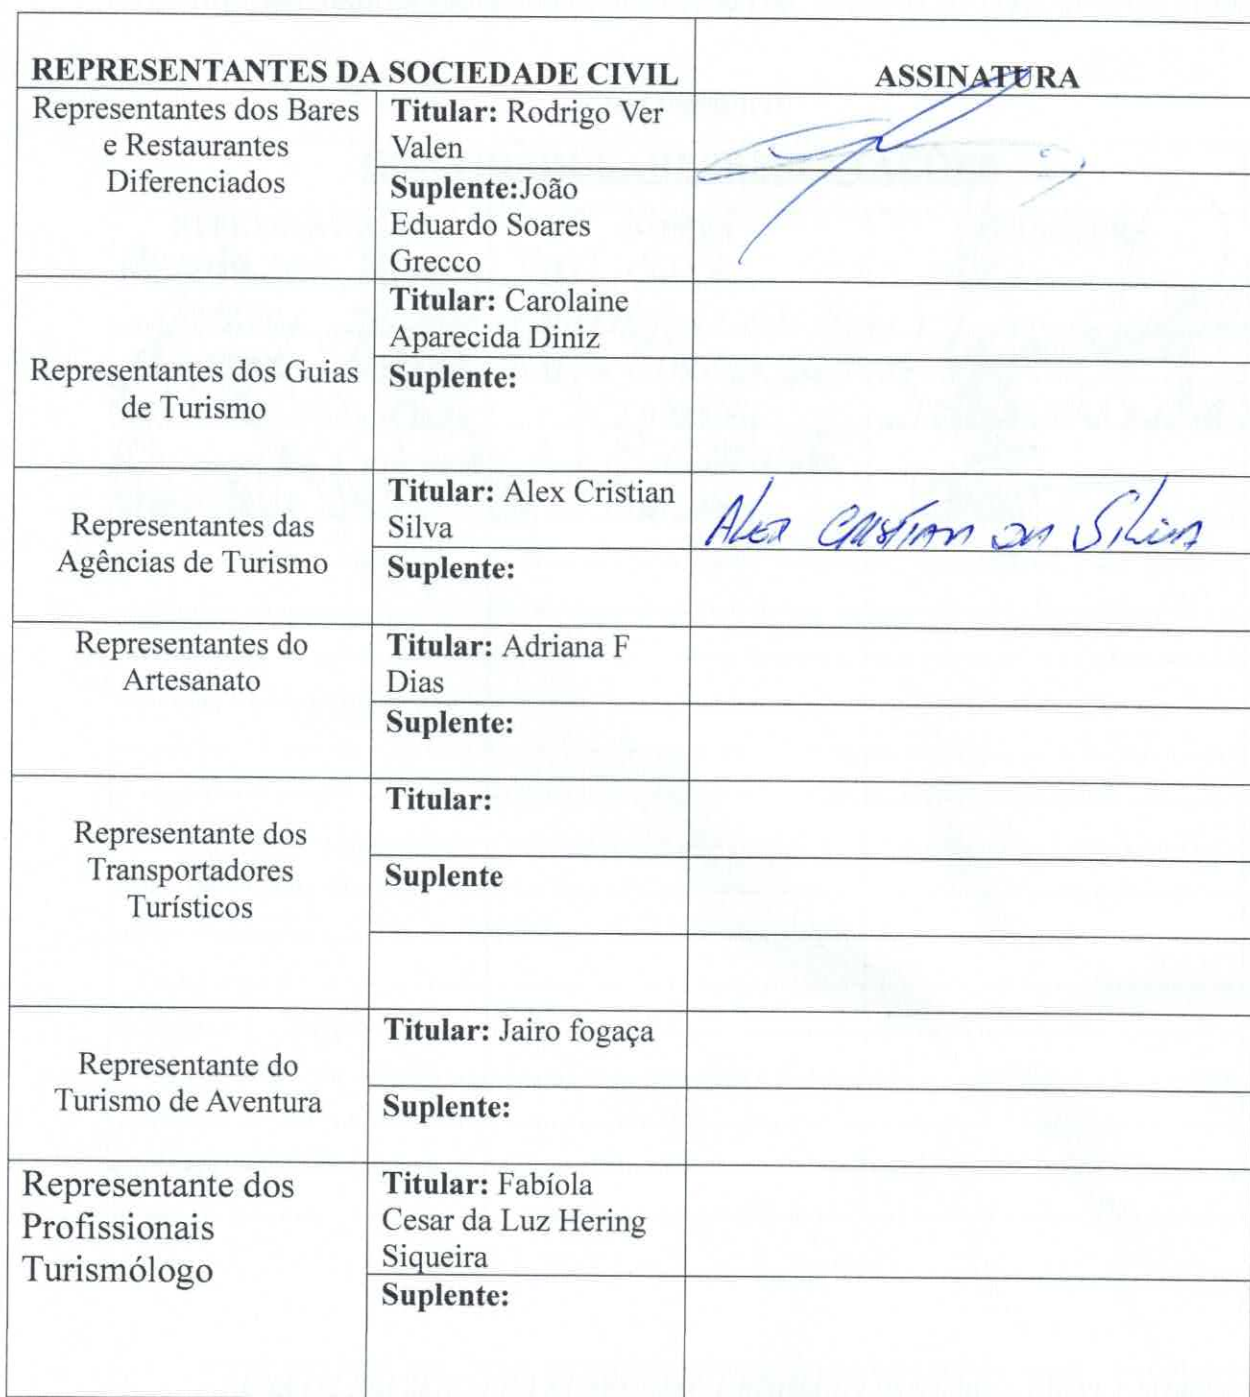 REPRESENTANTES DA SOCIEDADE CIVIL
ASSINATURA
Representantes dos Bares
e Restaurantes
Diferenciados
Titular: Rodrigo Ver
Valen
Suplente:João
Eduardo Soares
Grecco
Representantes dos Guias
de Turismo
Titular: Carolaine
Aparecida Diniz
Suplente:
Representantes das
Agências de Turismo
Titular: Alex Cristian
Silva
Alex Cristian da Silva
Suplente:
Representantes do
Artesanato
Titular: Adriana F
Dias
Suplente:
Representante dos
Transportadores
Turísticos
Titular:
Suplente
Representante do
Turismo de Aventura
Titular: Jairo fogaça
Suplente:
Representante dos
Profissionais
Turismólogo
Titular: Fabíola
Cesar da Luz Hering
Siqueira
Suplente: